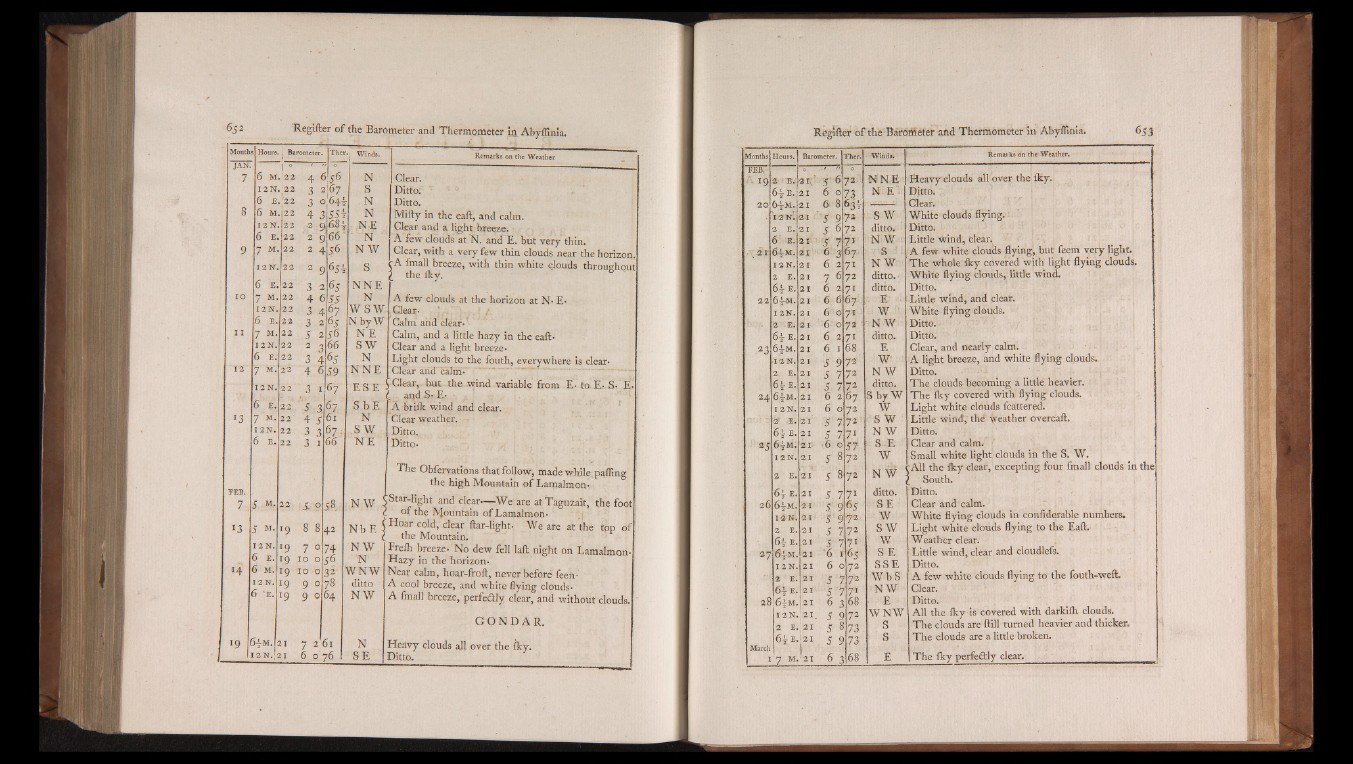 652 Regiſter of the Barometer and Thermometer in Abyſſinia.
Months Hours. Barometer. Ther. Winds. Remarks on the Weather
JAN.
7 6 M. 22 4 6 56 N Clear.
12 N. 22 3 2 67 S Ditto.
6 E. 22 3 0 64½ N Ditto.
8 6 M. 22 4 3 55½ N Miſty in the eaſt, and calm.
12 N. 22 2 9 68½ N E Clear and a light breeze.
6 E. 22 2 9 66 N A few clouds at N. and E. but very thin.
9 7 M. 22 2 4 56 N W Clear, with a very few thin clouds near the horizon.
12 N. 22 2 9 65½ S A ſmall breeze, with thin white clouds throughout
the ſky.
6 E. 22 3 2 65 N N E
10 7 M. 22 4 6 55 N A few clouds at the horizon at N. E.
12 N. 22 3 4 67 W S W Clear.
6 E. 22 3 2 65 N by W Calm and clear.
11 7 M. 22 5 2 56 N E Calm, and a little hazy in the eaſt.
12 N. 22 2 3 66 S W Clear and a light breeze.
6 E. 22 3 4 65 N Light clouds to the ſouth, everywhere is clear.
12 7 M. 22 4 6 59 N N E Clear and calm.
12 N. 22 3 1 67 E S E Clear, but the wind variable from E. to E. S. E.
and S. E.
6 E. 22 5 3 67 S b E A briſk wind and clear.
13 7 M. 22 4 5 61 N Clear weather.
12 N. 22 3 3 67 S W Ditto.
6 E. 22 3 1 66 N E Ditto.
The Obſervations that follow, made while paſſing
the high Mountain of Lamalmon.
FEB.
7 5 M. 22 5 0 58 N W Star-light and clear.—We are at Taguzait, the foot
of the Mountain of Lamalmon.
13 5 M. 19 8 8 42 N b E Hoar cold, clear ſtar-light. We are at the top of
the Mountain.
12 N. 19 7 0 74 N W Freſh breeze. No dew fell laſt night on Lamalmon.
6 E. 19 10 0 56 N Hazy in the horizon.
14 6 M. 19 10 0 32 W N W Near calm, hoar-froſt, never before ſeen.
12 N. 19 9 0 78 ditto A cool breeze, and white flying clouds.
6 E. 19 9 0 64 N W A ſmall breeze, perfectly clear, and without clouds.
GONDAR.
19 6½ M. 21 7 2 61 N Heavy clouds all over the ſky.
12 N. 21 6 0 76 S E Ditto.
Regiſter of the Barometer and Thermometer in Abyſſinia. 653
Months Hours. Barometer. Ther. Winds. Remarks on the Weather.
FEB.
19 2 E. 21 5 6 72 N N E Heavy clouds all over the ſky.
6½ E. 21 6 0 73 N E Ditto.
20 6½ M. 21 6 8 63½ —— Clear.
12 N. 21 5 9 72 S W White clouds flying.
2 E. 21 5 6 72 ditto. Ditto.
6 E. 21 5 7 71 N W Little wind, clear.
21 6½ M. 21 6 3 67 S A few white clouds flying, but ſeem very light.
12 N. 21 6 2 71 N W The whole ſky covered with light flying clouds.
2 E. 21 7 6 72 ditto. White flying clouds, little wind.
6½ E. 21 6 2 71 ditto. Ditto.
22 6½ M. 21 6 6 67 E Little wind, and clear.
12 N. 21 6 0 71 W White flying clouds.
2 E. 21 6 0 72 N W Ditto.
6½ E. 21 6 2 71 ditto. Ditto.
23 6½ M. 21 6 1 68 E Clear, and nearly calm.
12 N. 21 5 9 72 W A light breeze, and white flying clouds.
2 E. 21 5 7 72 N W Ditto.
6½ E. 21 5 7 72 ditto. The clouds becoming a little heavier.
24 6½ M. 21 6 2 67 S by W The ſky covered with flying clouds.
12 N. 21 6 0 72 W Light white clouds ſcattered.
2 E. 21 5 7 72 S W Little wind, the weather overcaſt.
6½ E. 21 5 7 71 N W Ditto.
25 6½ M. 21 6 0 57 S E Clear and calm.
12 N. 21 5 8 72 W Small white light clouds in the S. W.
2 E. 21 5 8 72 N W All the ſky clear, excepting four ſmall clouds in the
South.
6½ E. 21 5 7 71 ditto. Ditto.
26 6½ M. 21 5 9 65 S E Clear and calm.
12 N. 21 5 9 72 W White flying clouds in conſiderable numbers.
2 E. 21 5 7 72 S W Light white clouds flying to the Eaſt.
6½ E. 21 5 7 71 W Weather clear.
27 6½ M. 21 6 1 65 S E Little wind, clear and cloudleſs.
12 N. 21 6 0 72 S S E Ditto.
2 E. 21 5 7 72 W b S A few white clouds flying to the ſouth-weſt.
6½ E. 21 5 7 71 N W Clear.
28 6½ M. 21 6 3 68 E Ditto.
12 N. 21 5 9 72 W N W All the ſky is covered with darkiſh clouds.
2 E. 21 5 8 73 S The clouds are ſtill turned heavier and thicker.
6½ E. 21 5 9 73 S The clouds are a little broken.
March
1 7 M. 21 6 3 68 E The ſky perfectly clear.